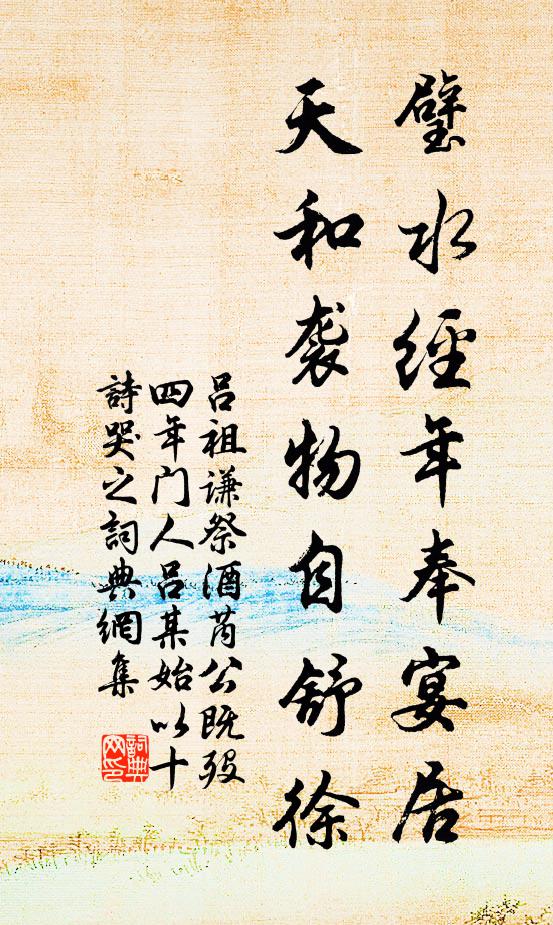 璧水經年奉宴居
天和袭物自舒徐
吕祖谦祭酒芮公既殁
四年门人吕某始以十
詩哭之詞典網集
詞典
网印